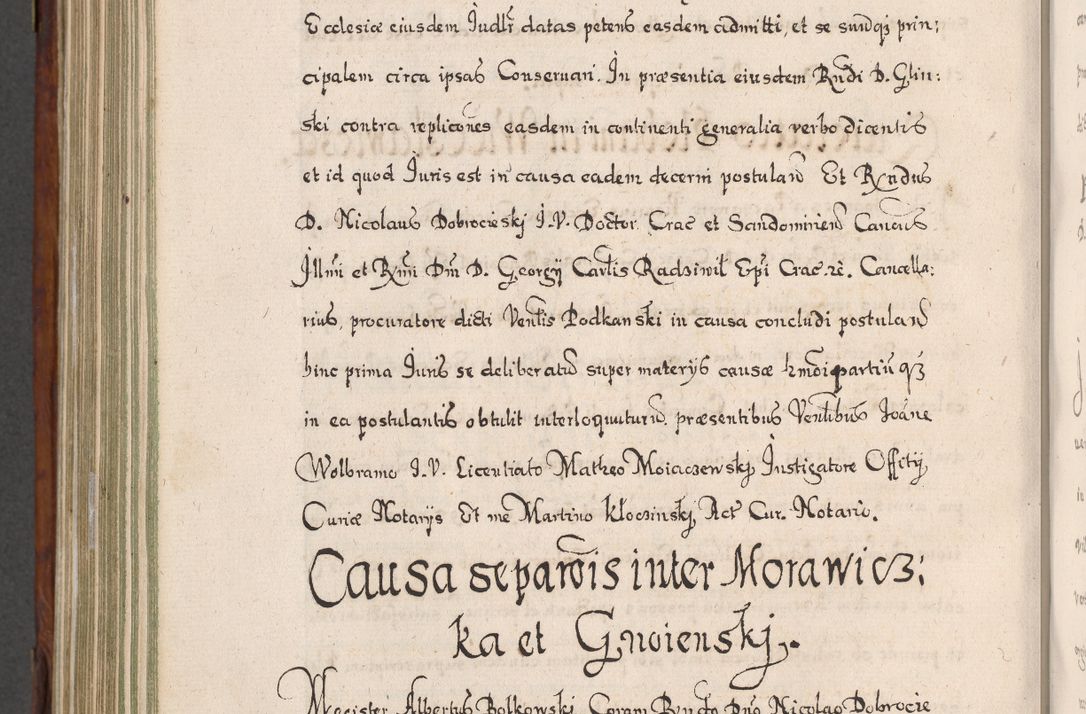 Ecclesiæ eiusdem Iudlr datas petens easdem admitti, et se suuqꝫ prin:
cipalem circa ipsas Conseruari. In præsentia eiusdem Rndi D. Glin:
ski contra replicones easdem in continenti generalia verbo dicentis
et id quod Iuris est in causa eadem decerni postulan Et Rndus
D. Nicolaus Dobrocieskj I.V. Doctor Crac et Sandomirien Cancus
Illmi et Rmi Dni D. Georgij Carlis Radziwil Epi Crac. rc. Cancella:
rius, procuratore dicti Venlis Podkanski in causa concludi postulan
hinc prima Iuris se deliberatu super materijs causæ hmoi partiu qꝫ
in ea postulantis obtulit interloquuturu. præsentibus Venlibus Ioane
Wolbramo I.V. Licentiato Matheo Moiaczewskj Instigatore Offity
Curiæ Notarijs Et me Martino Kłoczinskj Act Cur. Notario.
Causa separonis inter Morawicz:
ka et Gnoienskj.
Magister Albertus Bolkowski Coram Rndo Dno Nicolao Dobrocie